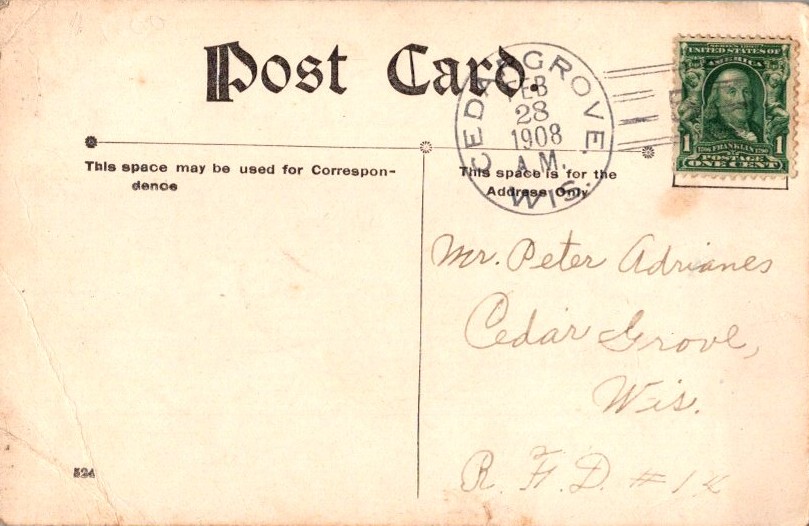 Post Card.
CEDAR GROVE
FEB
28
1908
A.M.
WIS.
SERIES 1902
UNITED STATES OF
AMERICA
1706 FRANKLIN 1790
1 POSTAGE 1
ONE CENT
This space may be used for Correspon-
dence
This space is for the
Address Only.
Mr. Peter Adrianes
Cedar Grove,
Wis.
R. F. D. #
524